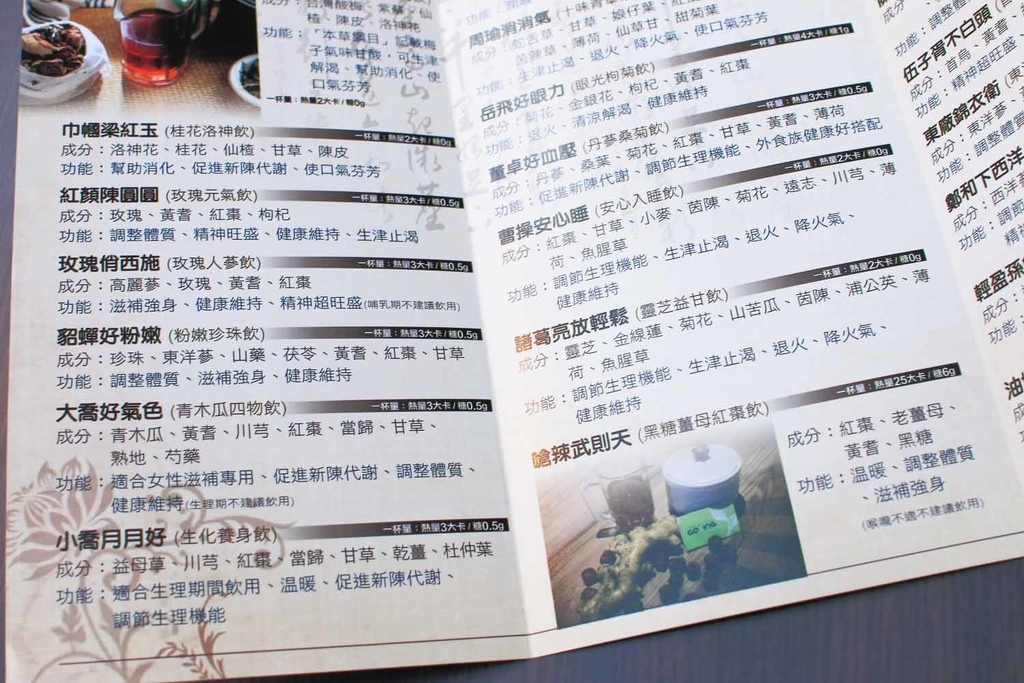 成分：台灣酸梅、紫蘇、仙
楂、陳皮、洛神花
功能：「本草綱目」記載梅
子氣味甘酸，可生津
解渴、幫助消化、使
口氣芬芳
一杯量：熱量2大卡/糖0g
巾幗梁紅玉 (桂花洛神飲)
一杯量：熱量2大卡/糖0g
成分：洛神花、桂花、仙楂、甘草、陳皮
功能：幫助消化、促進新陳代謝、使口氣芬芳
紅顏陳圓圓 (玫瑰元氣飲)
一杯量：熱量3大卡/糖0.5g
成分：玫瑰、黃耆、紅棗、枸杞
功能：調整體質、精神旺盛、健康維持、生津止渴
玫瑰俏西施 (玫瑰人蔘飲)
一杯量：熱量3大卡/糖0.5g
成分：高麗蔘、玫瑰、黃耆、紅棗
功能：滋補強身、健康維持、精神超旺盛(哺乳期不建議飲用)
貂蟬好粉嫩 (粉嫩珍珠飲)
一杯量：熱量3大卡/糖0.5g
成分：珍珠、東洋蔘、山藥、茯苓、黃耆、紅棗、甘草
功能：調整體質、滋補強身、健康維持
大喬好氣色 (青木瓜四物飲)
一杯量：熱量3大卡/糖0.5g
成分：青木瓜、黃耆、川芎、紅棗、當歸、甘草、
熟地、芍藥
功能：適合女性滋補專用、促進新陳代謝、調整體質、
健康維持(生理期不建議飲用)
小喬月月好 (生化養身飲)
一杯量：熱量3大卡/糖0.5g
成分：益母草、川芎、紅棗、當歸、甘草、乾薑、杜仲葉
功能：適合生理期間飲用、溫暖、促進新陳代謝、
調節生理機能
周瑜消消氣 (十味青
成分：蛇舌草、甘草、娘仔葉、
茵陳草、薄荷、仙草甘、甜菊葉
功能：生津止渴、退火、降火氣、使口氣芬芳
一杯量：熱量4大卡/糖1g
岳飛好眼力 (眼光枸菊飲)
成分：菊花、金銀花、枸杞、黃耆、紅棗
功能：退火、清涼解渴、健康維持
一杯量：熱量3大卡/糖0.5g
董卓好血壓 (丹蔘桑菊飲)
成分：丹蔘、桑葉、菊花、紅棗、甘草、黃耆、薄荷
功能：促進新陳代謝、調節生理機能、外食族健康好搭配
一杯量：熱量2大卡/糖0g
曹操安心睡 (安心入睡飲)
成分：紅棗、甘草、小麥、茵陳、菊花、遠志、川芎、薄
荷、魚腥草
功能：調節生理機能、生津止渴、退火、降火氣、
健康維持
一杯量：熱量2大卡/糖0g
諸葛亮放輕鬆 (靈芝益甘飲)
成分：靈芝、金線蓮、菊花、山苦瓜、茵陳、蒲公英、薄
荷、魚腥草
功能：調節生理機能、生津止渴、退火、降火氣、
健康維持
一杯量：熱量25大卡/糖6g
嗆辣武則天 (黑糖薑母紅棗飲)
成分：紅棗、老薑母、
黃耆、黑糖
功能：溫暖、調整體質
、滋補強身
(喉嚨不適不建議飲用)
GO ING
功能：調整體
伍子胥不白頭
成分：首烏、黃耆
功能：精神超旺盛
東廠錦衣衛 (東
成分：東洋蔘、
功能：調整體質
鄭和下西洋
成分：西洋蔘
功能：調節
精神
輕盈孫
成分：
功能：
油
成
功